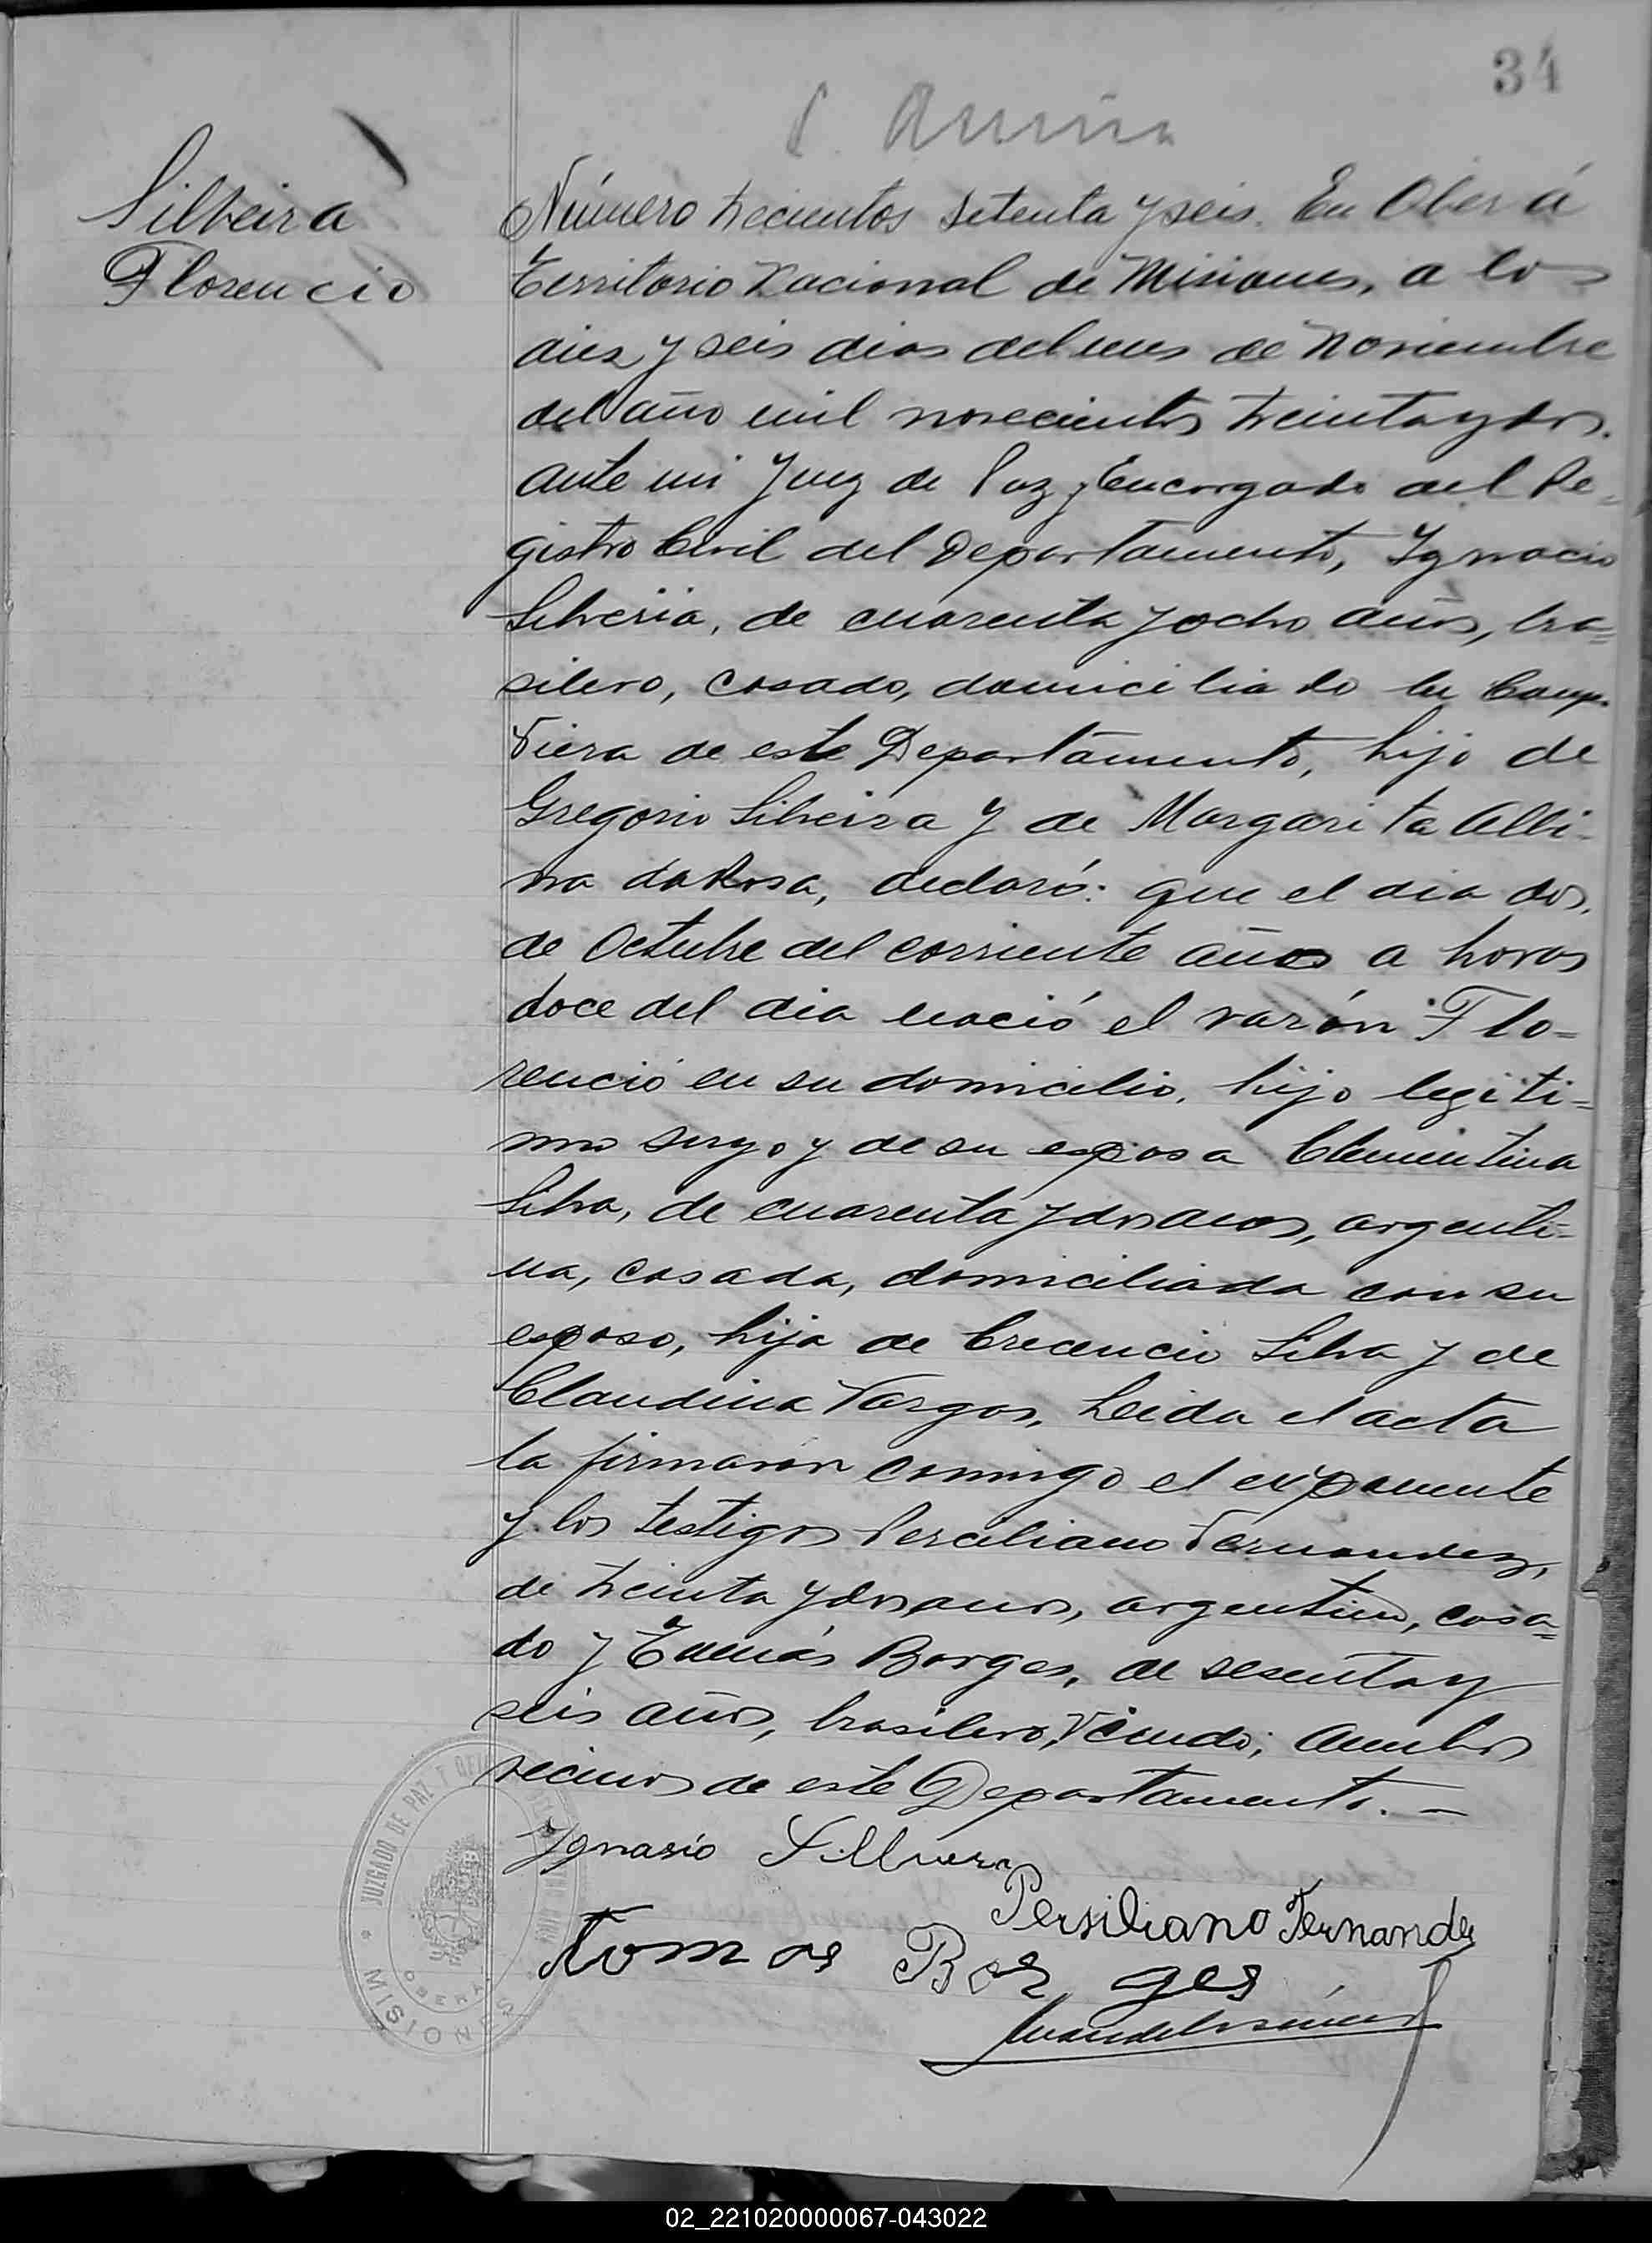 34
Silveira
Florencio
Número trecientos setenta y seis. En Oberá
Territorio Nacional de Misiones, a los
diez y seis dias del mes de Noviembre
del año mil novecientos treinta y dos.
ante mi Juez de Paz y Encargado del Re-
gistro Civil del Departamento, Ygnacio
Silveria, de cuarenta y ocho años, bra=
silero, casado, domiciliado en Camp.
Viera de este Departamento, hijo de
Gregorio Silveira y de Margarita Albi-
na da Rosa, declaró: que el dia dos,
de Octubre del corriente año a horas
doce del dia nació el varón Flo-
rencio en su domicilio, hijo legiti=
mo suyo y de su esposa Clementina
Silva, de cuarenta y dos años, argenti-
na, casada, domiciliada con su
esposo, hija de Crecencio Silva y de
Claudina Vargas, Leida el acta
la firmaron conmigo el exponente
y los testigos Perciliano Fernandez,
de treinta y dos anos, argentino, casa=
do y Tomás Borges, de sesenta y
seis años, brasilero, viudo; ambos
vecinos de este Departamento. —
Ygnasio Sillvera
Persiliano Fernandez
Tomas Bor ges
JUZGADO DE PAZ Y
OBERA
MISIONES
02_221020000067-043022